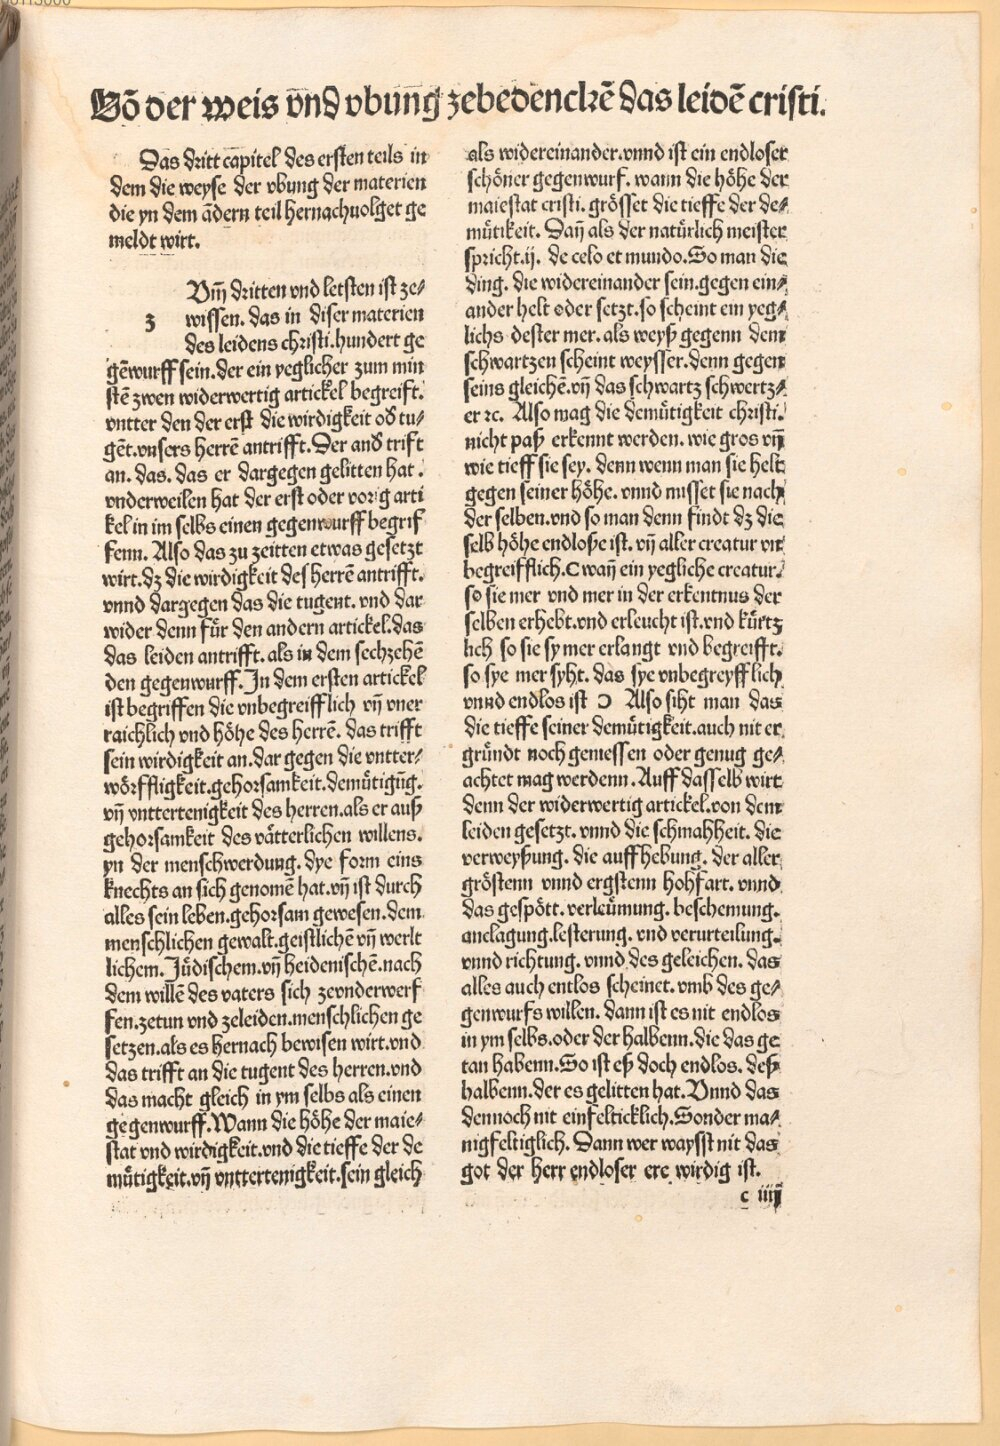 Võ der weis vñd vbuñg zebedenckē das leidē cristi.
Das dritt capitel des ersten teils in
dem die weyse der vbung der materien
die yn dem ādern teil hernachuolget ge
meldt wirt.
Vm̄ dritten vnd letsten ist ze⸗
wissen. das in diser materien
des leidens christi. hundert ge
gēwurff sein. der ein yeglicher zum min
stē zwen widerwertig artickel begreift.
vntter den der erst die wirdigkeit od tu⸗
gēt. vnsers herrē antrifft. Der and trift
an. das. das er dargegen gelitten hat.
vnderweilen hat der erst oder vorig arti
kel in im selbs einen gegenwurff begrif
fenn. Also das zu zeitten etwas gesetzt
wirt. dz die wirdigkeit des herrē antrifft.
vnnd dargegen das die tugent. vnd dar
wider denn für den andern artickel. das
das leiden antrifft. als in dem sechzehē
den gegenwurff. In dem ersten artickel
ist begriffen die vnbegreifflich vn̄ vner
raichlich vnd höhe des herrē. das trifft
sein wirdigkeit an. dar gegen die vntter⸗
wörffligkeit. gehorsamkeit. demütigūg.
vn̄ vnttertenigkeit des herren. als er auß
gehorsamkeit des vätterlichen willens.
yn der menschwerdung. dye form eins
knechts an sich genomē hat. vn̄ ist durch
alles sein leben. gehorsam gewesen. dem
menschlichen gewalt. geistlichē vn̄ werlt
lichem. Jüdischem. vn̄ heidenischē. nach
dem willē des vaters sich zevnderwerf
fen. zetun vnd zeleiden. menschlichen ge
setzen. als es hernach bewisen wirt. vnd
das trifft an die tugent des herren. vnd
das macht gleich in ym selbs als einen
gegenwurff. Wann die höhe der maie⸗
stat vnd wirdigkeit. vnd die tieffe der de
mütigkeit. vn̄ vnttertenigkeit. sein gleich
als widereinander. vnnd ist ein endloser
schöner gegenwurf. wann die höhe der
maiestat cristi. grösset die tieffe der de⸗
mütikeit. Dan̄ als der natürlich meister
spricht. ij. de celo et mundo. So man die
ding. die widereinander sein. gegen ein⸗
ander helt oder setzt. so scheint ein yeg⸗
lichs dester mer. als weyß gegenn dem
schwartzen scheint weysser. denn gegen
seins gleichē. vn̄ das schwartz schwertz⸗
er ꝛc. Also mag die demütigkeit christi.
nicht paß erkennt werden. wie gros vn̄
wie tieff sie sey. denn wenn man sie helt
gegen seiner höhe. vnnd misset sie nach
der selben. vnd so man denn findt dz die
selb höhe endloße ist. vn̄ aller creatur vn
begreifflich. C wan̄ ein yegliche creatur.
so sie mer vnd mer in der erkentnus der
selben erhebt. vnd erleucht ist. vnd kürtz
lich so sie sy mer erlangt vnd begreifft.
so sye mer syht. das sye vnbegreyfflich
vnnd endlos ist Ɔ Also siht man das
die tieffe seiner demütigkeit. auch nit er
gründt noch gemessen oder genug ge⸗
achtet mag werdenn. Auff dasselb wirt
denn der widerwertig artickel. von dem
leiden gesetzt. vnnd die schmahheit. die
verweyßung. die auffhebung. der aller
gröstenn vnnd ergstenn hohfart. vnnd
das gespött. verleümung. beschemung.
anclagung. lesterung. vnd verurteilung.
vnnd richtung. vnnd des geleichen. das
alles auch entlos scheinet. vmb des ge⸗
genwurfs willen. dann ist es nit endlos
in ym selbs. oder der halbenn. die das ge
tan habenn. So ist eß doch endlos. deß
halbenn. der es gelitten hat. Vnnd das
dennoch nit einfelticklich. Sonder ma⸗
nigfeltiglich. Dann wer waysst nit das
got der herr endloser ere wirdig ist.
c iiij